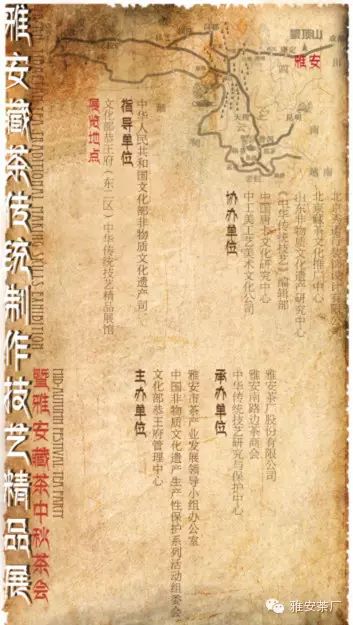 雅安藏茶传统制作技艺精品展
TEA TRADITIONAL MAKING SKILLS EXHIBITION
暨雅安藏茶中秋茶会
MID-AUTUMN FESTIVAL TEA PARTY
展览地点
文化部恭王府（东二区）中华传统技艺精品展馆
指导单位
中华人民共和国文化部非物质文化遗产司
主办单位
文化部恭王府管理中心
中国非物质文化遗产生产性保护系列活动组委会
雅安市茶产业发展领导小组办公室
承办单位
中华传统技艺研究与保护中心
雅安南路边茶商会
雅安茶厂股份有限公司
协办单位
中国唐卡文化研究中心
《中华传统技艺》编辑部
山东非物质文化遗产研究中心
北京藏茶文化推广中心
雅安
昆明
越
南
雅安茶厂